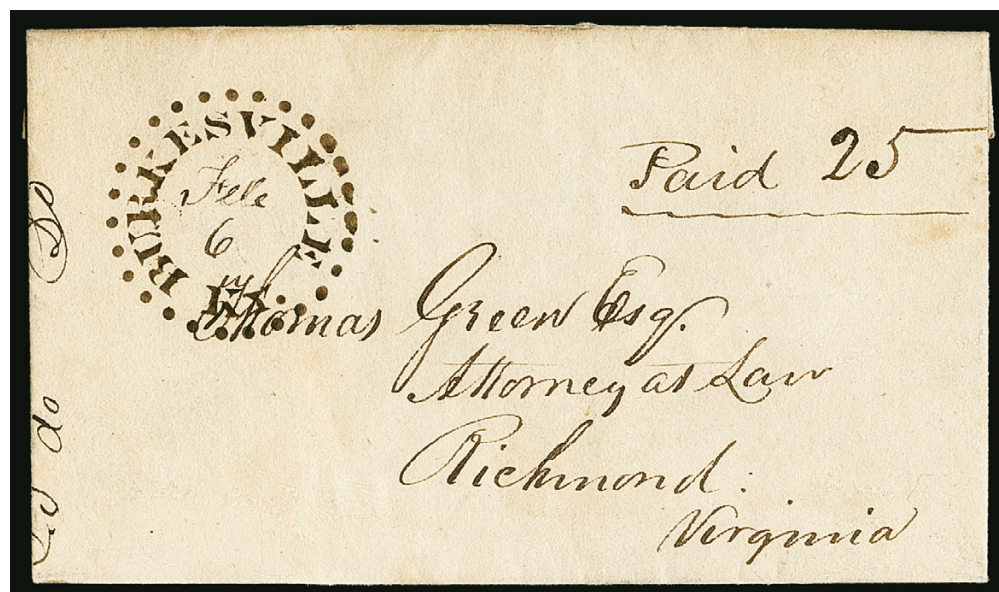 BURKESVILLE
Feb
6
Paid 25
Thomas Green Esq.
Attorney at Law
Richmond.
Virginia
do